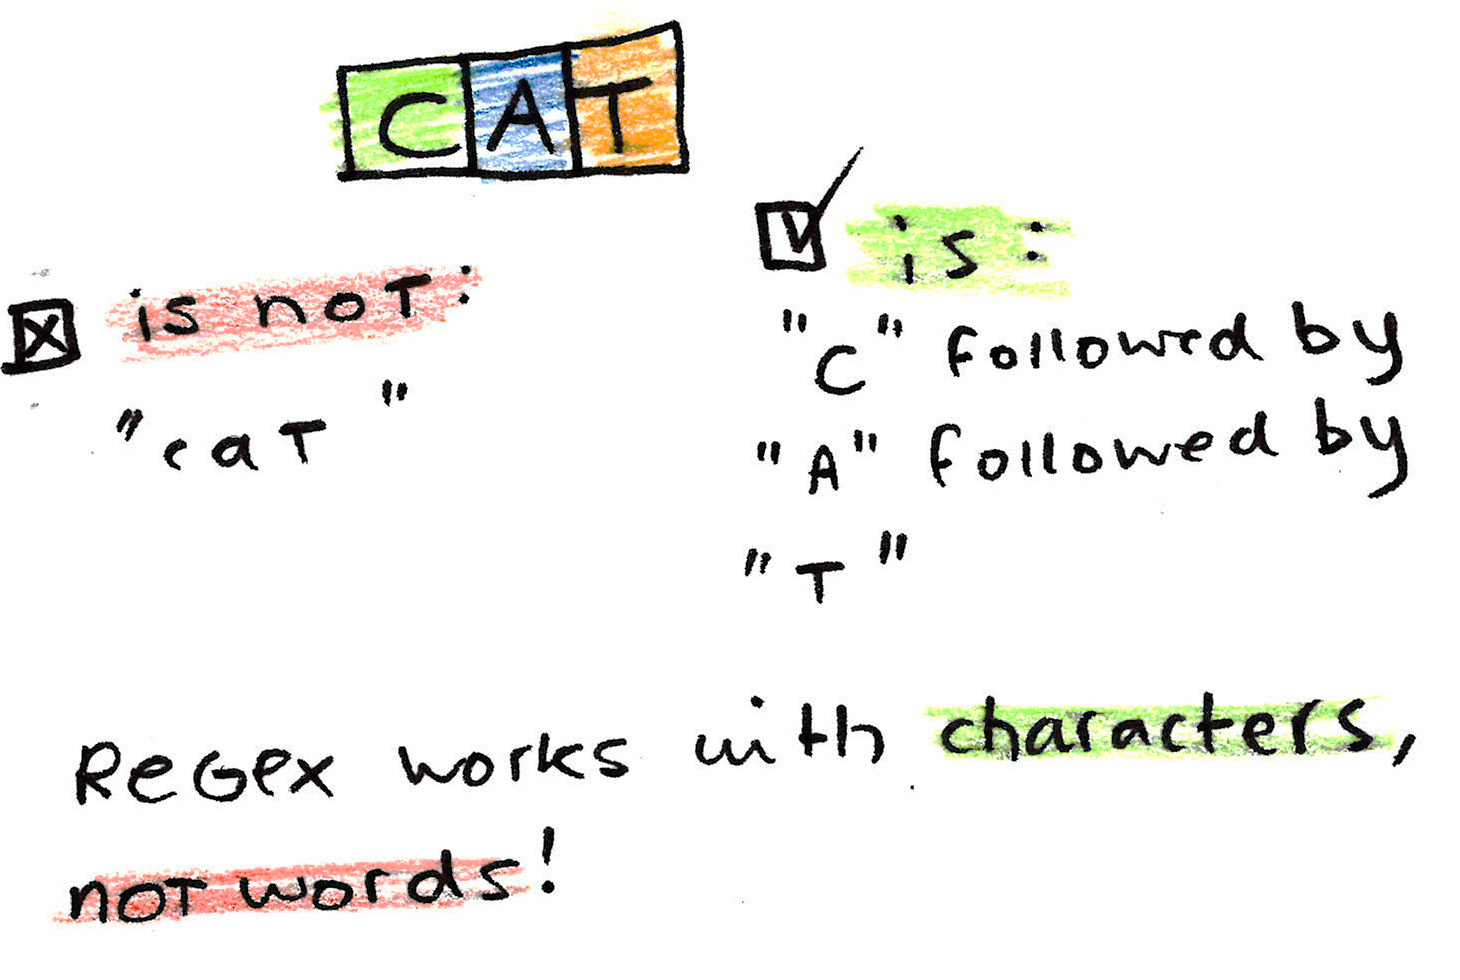 CAT
is not:
"caT"
is:
"C" followed by
"A" followed by
"T"
ReGex works with characters,
noT words!